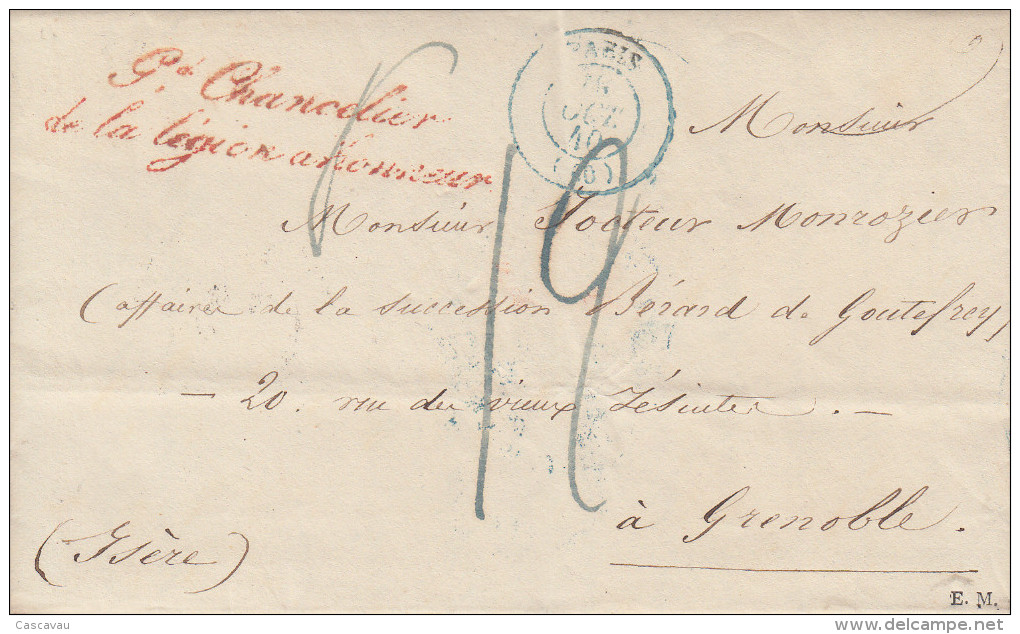 Gd. Chancelier
de la légion d'honneur
PARIS
OCT
40
(60)
19
Monsieur
Monsieur Docteur Monrozier
(affaire de la succession Bérard de Goutefrey)
— 20. rue du vieux Jésuites. —
à Grenoble.
(Isère)
E. M.
Cascavau
www.delcampe.net